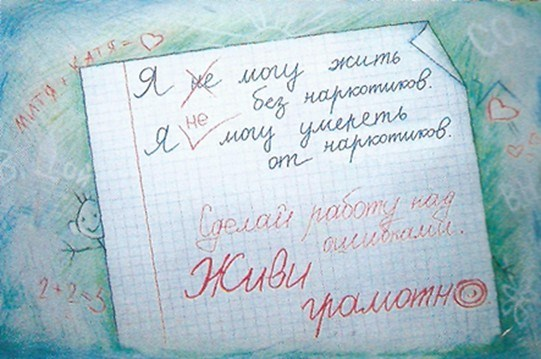 МИТЯ + КАТЯ =
Я не могу жить
без наркотиков.
не
Я могу умереть
от наркотиков.
Сделай работу над
ошибками.
Живи
2+2=5
грамотно